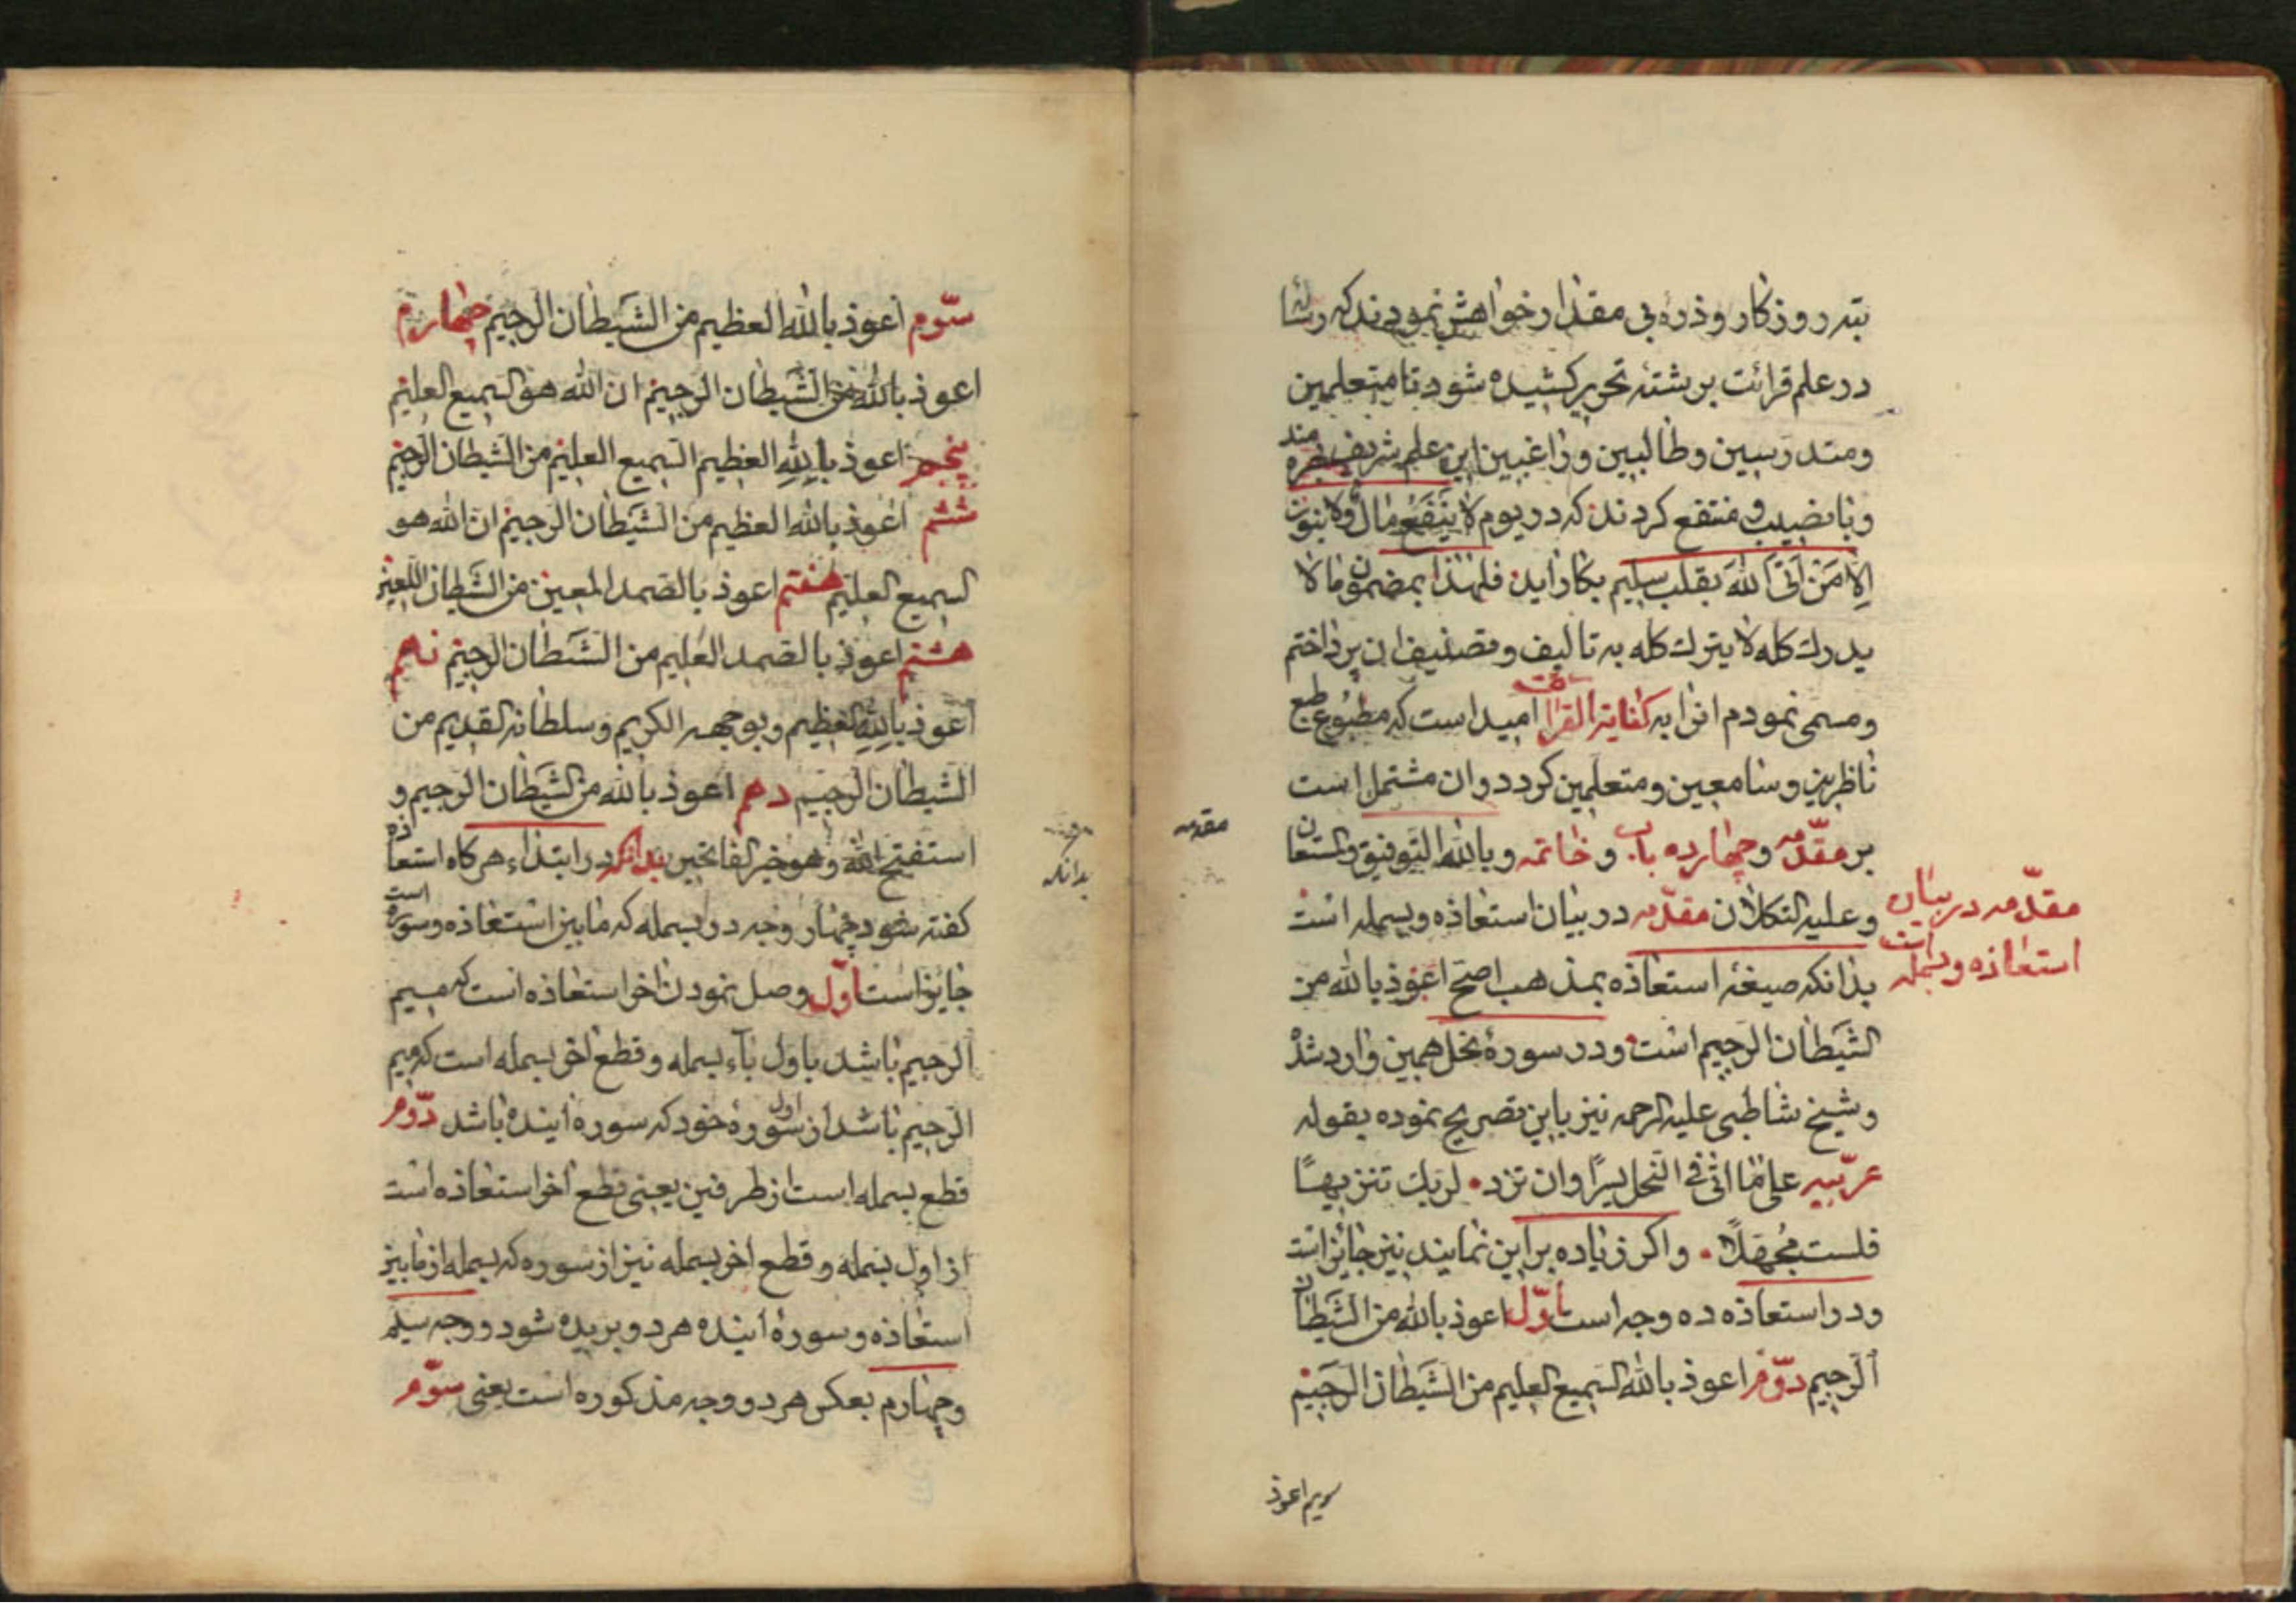 تبه روزكار وذره بی مقدار خواهش نمودند كه رسالۀ
در علم قرائت برشته تحریر كشیده شود تا متعلمین
ومتدرسین وطالبین وراغبین این علم شریف بهره مند
وبا نصیب ومنتفع كردند كه در یوم لا ینفع مال ولا بنون
الا من اتی الله بقلب سلیم بكار اید فلهذا بمضمون ما لا
یدرك كله لا یترك كله به تالیف وتصنیف ان پرداختم
ومسمی نمودم انرا به كفایة القرا امید است كه مطبوع طبع
ناظرین وسامعین ومتعلمین كردد وان مشتمل است
بر مقدّمه وچهارده باب وخاتمه وبالله التوفیق والمستعان
وعلیه التكلان مقدّمه در بیان استعاذه وبسمله است
مقدّمه در بیان
استعاذه وبسمله است
مقدمه
بدانكه صیغه استعاذه بمذهب اصح اعوذ بالله من
الشیطان الرجیم است ودر سورۀ نحل همین وارد شده
وشیخ شاطبی علیه الرحمه نیز باین تصریح نموده بقوله
عربیه علی ما اتی فی النحل یسرًا وان تزد لربك تنزیهًا
فلست مجهّلاً واكر زیاده بر این نمایند نیز جائز است
ودر استعاذه ده وجه است اوّل اعوذ بالله من الشیطان
الرجیم دوّم اعوذ بالله السمیع العلیم من الشیطان الرجیم
سویم اعوذ
سوّم اعوذ بالله العظیم من الشیطان الرجیم چهارم
اعوذ بالله من الشیطان الرجیم ان الله هو السمیع العلیم
پنجم اعوذ بالله العظیم السمیع العلیم من الشیطان الرجیم
ششم اعوذ بالله العظیم من الشیطان الرجیم ان الله هو
السمیع العلیم هفتم اعوذ بالصمد المعین من الشیطان اللعین
هشتم اعوذ بالصمد العلیم من الشیطان الرجیم نهم
اعوذ بالله العظیم وبوجهه الكریم وسلطانه القدیم من
الشیطان الرجیم دهم اعوذ بالله من الشیطان الرجیم و
استفتح الله وهو خیر الفاتحین بدانكه در ابتداء هر كاه استعاذه
بدانكه
كفته شود چهار وجه در بسمله كه مابین استعاذه وسوره است
جایز است اوّل وصل نمودن اخر استعاذه است كه میم
الرجیم باشد باول بآء بسمله وقطع اخر بسمله است كه میم
الرجیم باشد از اول سورۀ خود كه سوره آینده باشد دوّم
قطع بسمله است از طرفین یعنی قطع اخر استعاذه است
از اول بسمله وقطع اخر بسمله نیز از سوره كه بسمله از مابین
استعاذه وسورۀ آینده هر دو بریده شود ووجه سیم
وچهارم بعكس هر دو وجه مذكوره است یعنی سوّم